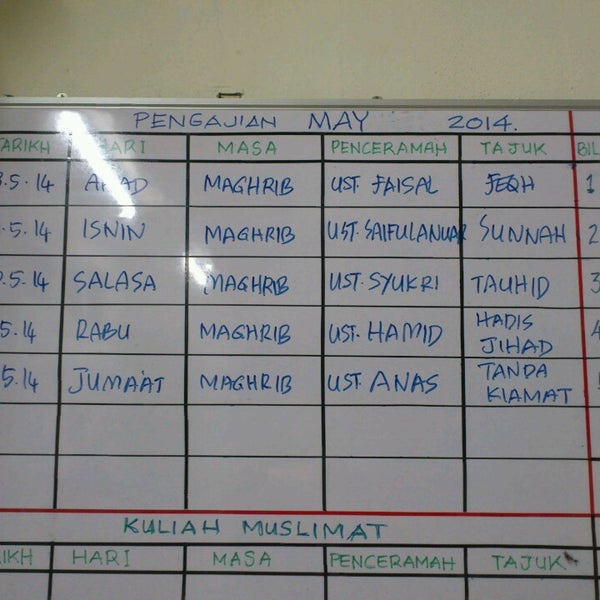 PENGAJIAN MAY 2014.
TARIKH HARI MASA PENCERAMAH TAJUK BIL
.5.14 AHAD MAGHRIB UST. FAISAL FEQH 1
.5.14 ISNIN MAGHRIB UST. SAIFULANUAR SUNNAH 2
.5.14 SALASA MAGHRIB UST. SYUKRI TAUHID 3
5.14 RABU MAGHRIB UST. HAMID HADIS JIHAD 4
5.14 JUMA'AT MAGHRIB UST. ANAS TANDA KIAMAT
KULIAH MUSLIMAT
RIKH HARI MASA PENCERAMAH TAJUK